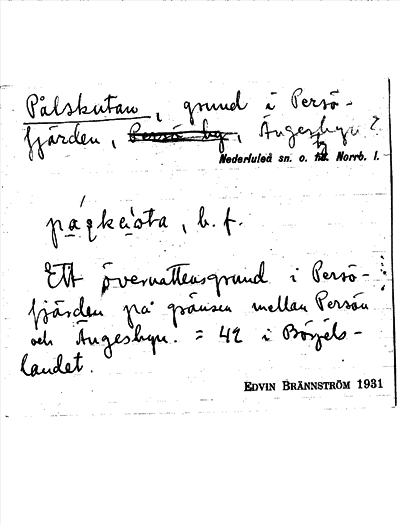 Pålskutan, grund i Persö-
fjärden, Persö by, Ängesbyn?
Nederluleå sn. o. Norrb. l.
b. f.
Ett övervattensgrund i Persö-
fjärden på gränsen mellan Persön
och Ängesbyn. = 42 i Börjels-
landet.
EDVIN BRÄNNSTRÖM 1931